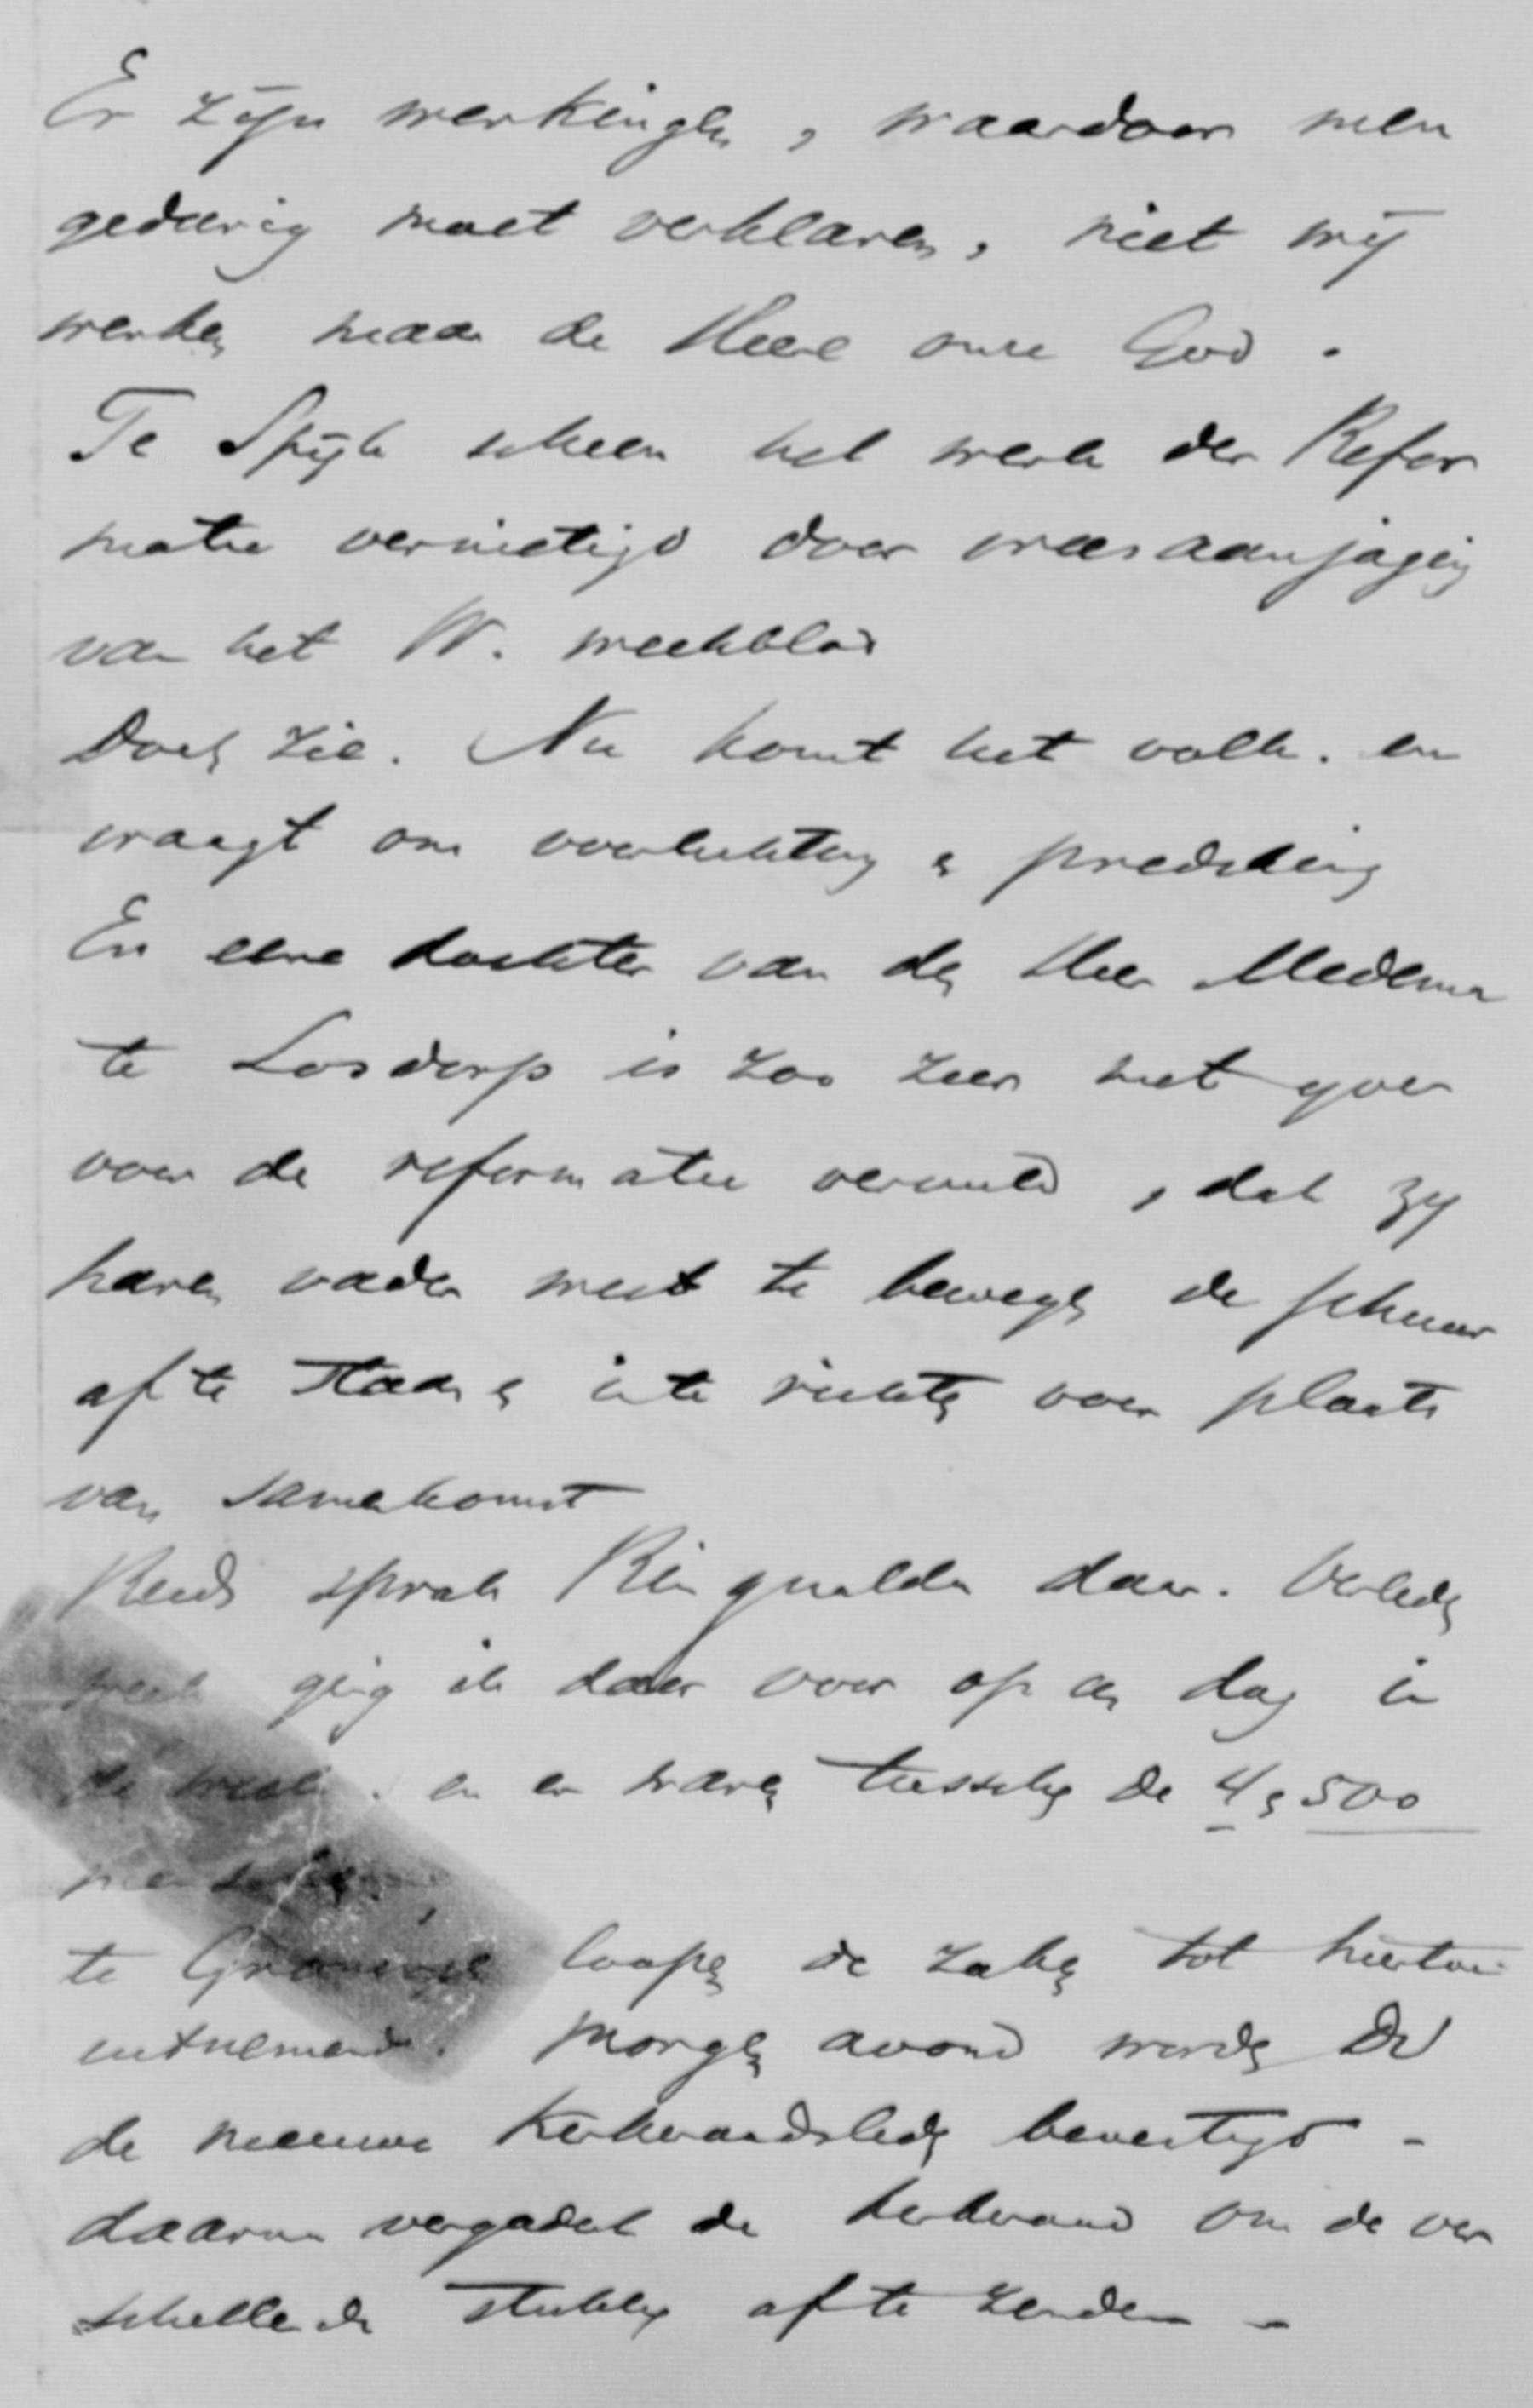 Er zijn werkingen, waardoor men
gedurig moet verklaren, niet wij
werken maar de Heere onze God.
Te Spijk scheen het werk der Refor
matie vernietigd door vreesaanjaging
van het W. weekblad
Doch zie. Nu komt het volk. en
vraagt om voorlichting en prediking
En eene dochter van den Heer Medema
te Losdorp is zoo zeer met ijver
voor de reformatie vervuld, dat zij
haren vader weet te bewegen de schuur
af te staan en in te richten voor plaats
van samenkomst
Reeds sprak Ringnalda daar. Verleden
week ging ik daar voor op een dag in
de week. en er waren tusschen de 4 en 500
menschen.
te Groningen loopen de zaken tot hiertoe
uitnemend. Morgen avond worden DV
de nieuwe kerkeraadsleden bevestigd -
daarna vergadert de kerkeraad om de ver
schillende stukken af te zenden -